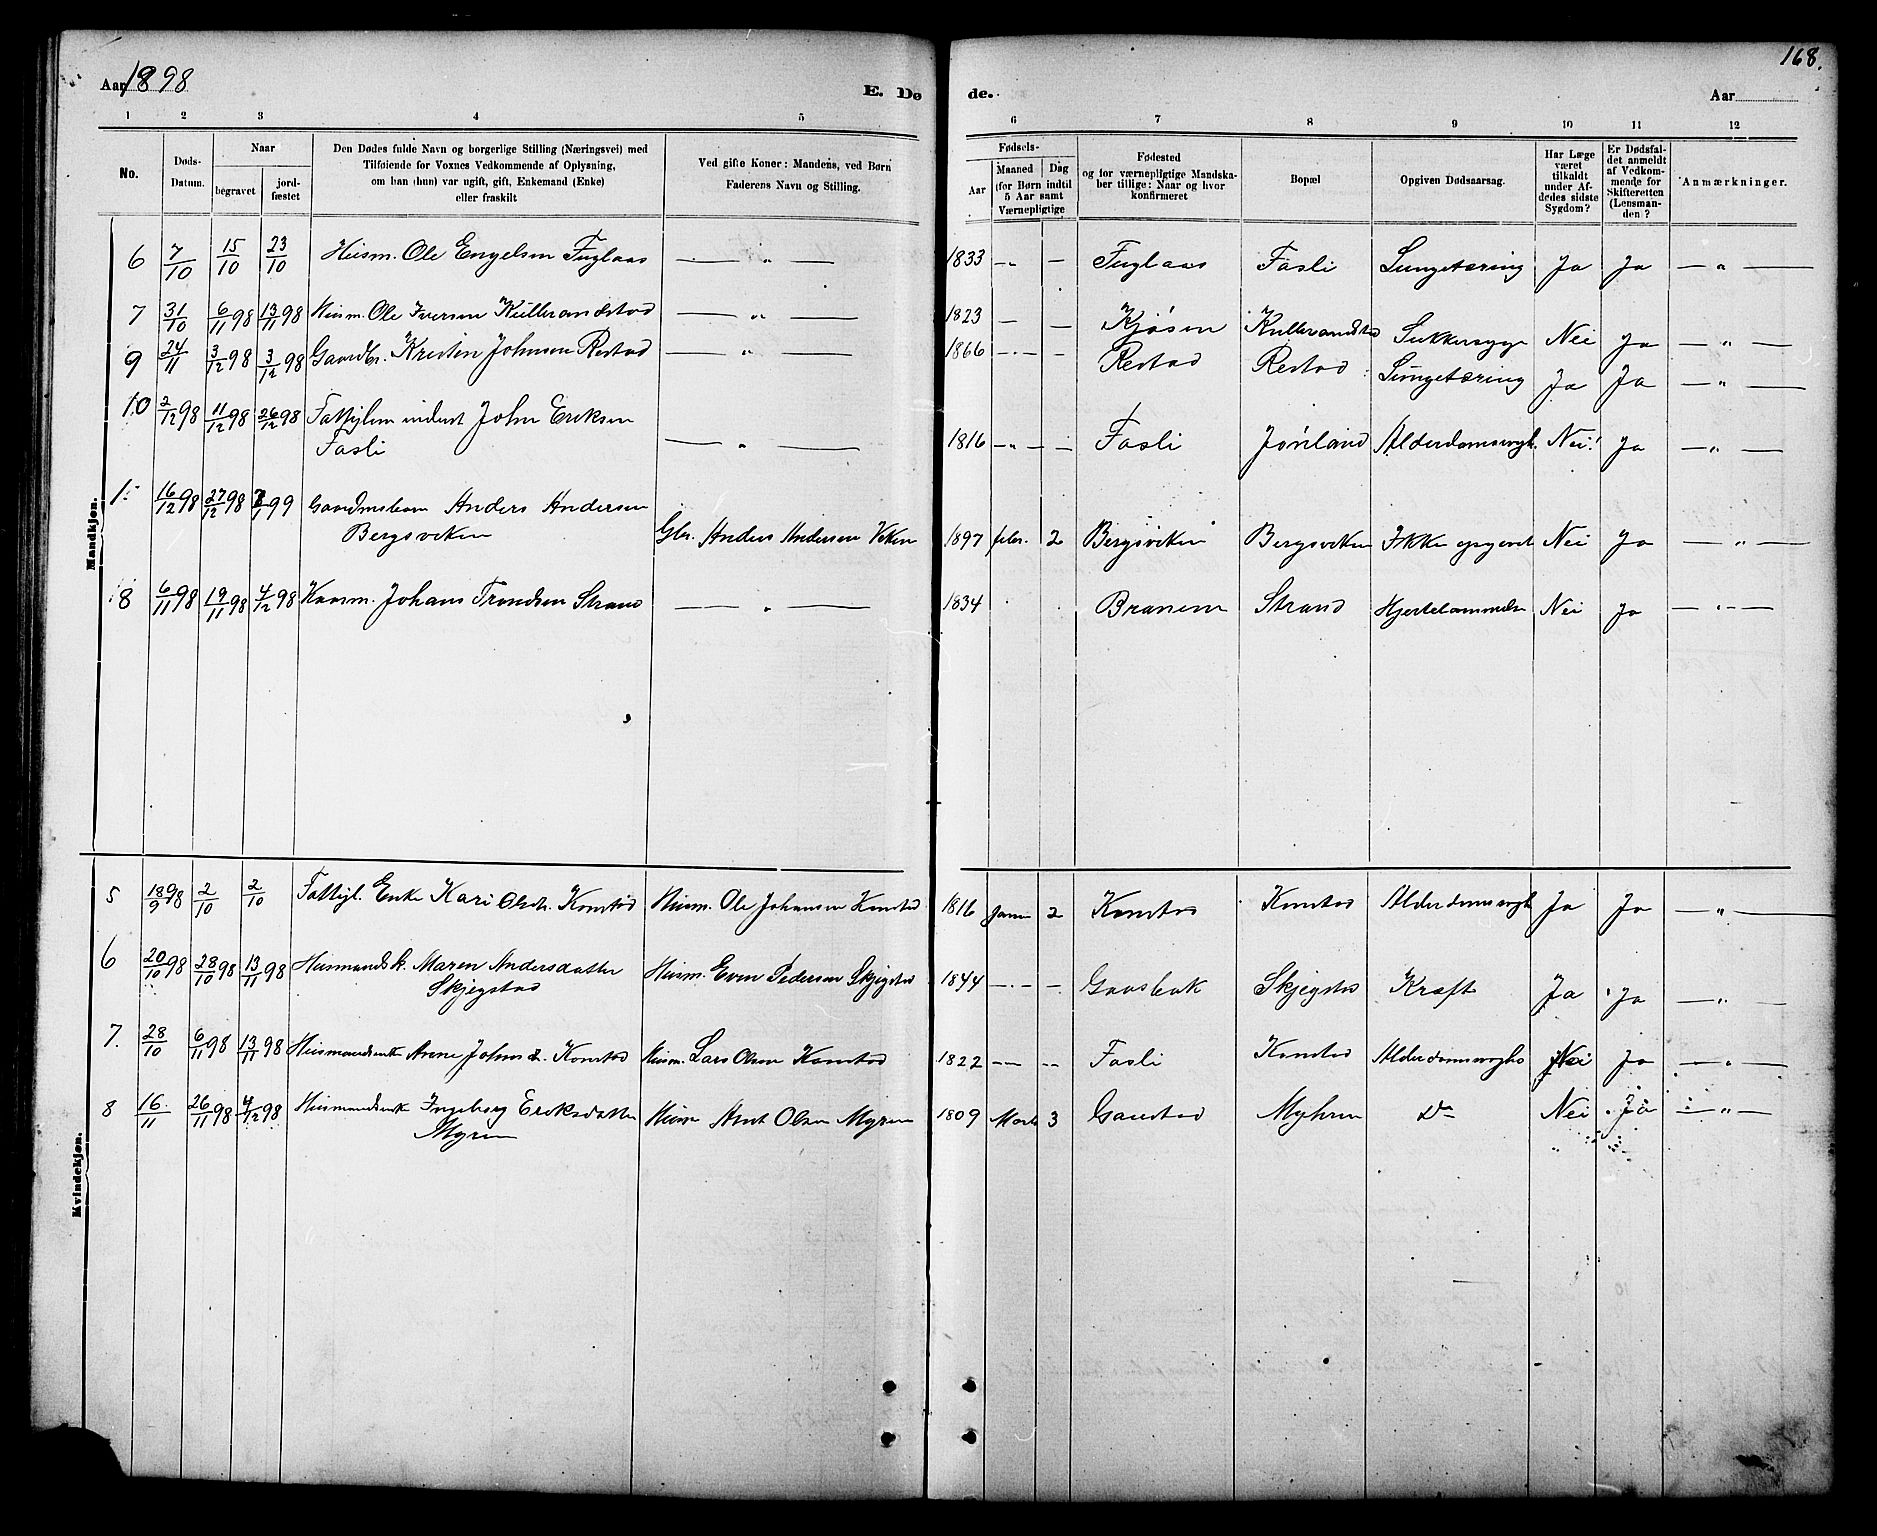 168.
Aar 1898 E. Dø de. Aar
1 2 3 4 5 6 7 8 9 10 11 12
No. Døds-Datum. Naar begravet jordfæstet
Den Dødes fulde Navn og borgerlige Stilling (Næringsvei) med
Tilføiende for Voxnes Vedkommende af Oplysning,
om han (hun) var ugift, gift, Enkemand (Enke)
eller fraskilt
Ved gifte Koner: Mandens, ved Børn
Faderens Navn og Stilling.
Fødsels- Aar Maaned Dag
(for Børn indtil
5 Aar samt
Værnepligtige
Fødested
og for værnepligtige Mandska-
ber tillige: Naar og hvor
konfirmeret
Bopæl
Opgiven Dødsaarsag.
Har Læge
været
tilkaldt
under Af-
dødes sidste
Sygdom?
Er Dødsfal-
det anmeldt
af Vedkom-
mende for
Skifteretten
(Lensman-
den?
Anmærkninger.
Mandkjøn.
6 7/10 15/10 23/10 Husm. Ole Engelsen Fuglaas — " — 1833 — " — Fuglaas Fasli Lungetæring Ja Ja — " —
7 31/10 6/11 98 13/11 98 Husm. Ole Iversen Kullerandstad — " — 1823 — — Kjøsen Kullerandstad Sukkersyge Nei Ja — " —
9 24/11 3/12 98 3/12 98 Gaardbr. Kristin Johnsen Restad — " — 1866 — " — Restad Restad Lungetæring Ja Ja — " —
10 2/12 98 11/12 98 26/12 98 Fattiglem inderst John Eriksen
Fasli — " — 1816 — " — — Fasli Jørland Alderdomssvagh. Nei! Ja — " —
1 16/12 98 27/12 98 /1 99 Gaardmsbarn Anders Andersen
Bergsviken Gbr. Anders Andersen Viken 1897 febr. 2 Bergsviken Bergsviken Ikke opgivet Nei Ja — " —
8 6/11 98 19/11 98 4/12 98 Kaarm. Johans Trondsen Strand — " — 1834 Branem Strand Hjertelammelse Nei Ja — " —
Kvindekjøn.
5 18/9 98 2/10 2/10 Fattigl. Enke Kari Olsdt. Konstad Husm. Ole Johansen Konstad 1816 Janu 2 Konstad Konstad Alderdomssvagh Ja Ja — " —
6 20/10 98 28/10 98 13/11 98 Husmandsk. Maren Andersdatter
Skjegstad Husm. Even Pedersen Skjegstad 1844 — — — Gaasbak Skjegstad Kræft Ja Ja — " —
7. 28/10 6/11 98 13/11 98 Husmandsenk Anne Johnsd. Konstad Husm. Lars Olsen Konstad 1822 — — Fasli Konstad Alderdomssvaghe Nei Ja — " —
8 16/11 26/11 98 4/12 98 Husmandsenk Ingeborg Eriksdatter
Myren Husm Arnt Olsen Myren 1809 Marts 3 Gaustad Myhren Do Nei Ja — " —